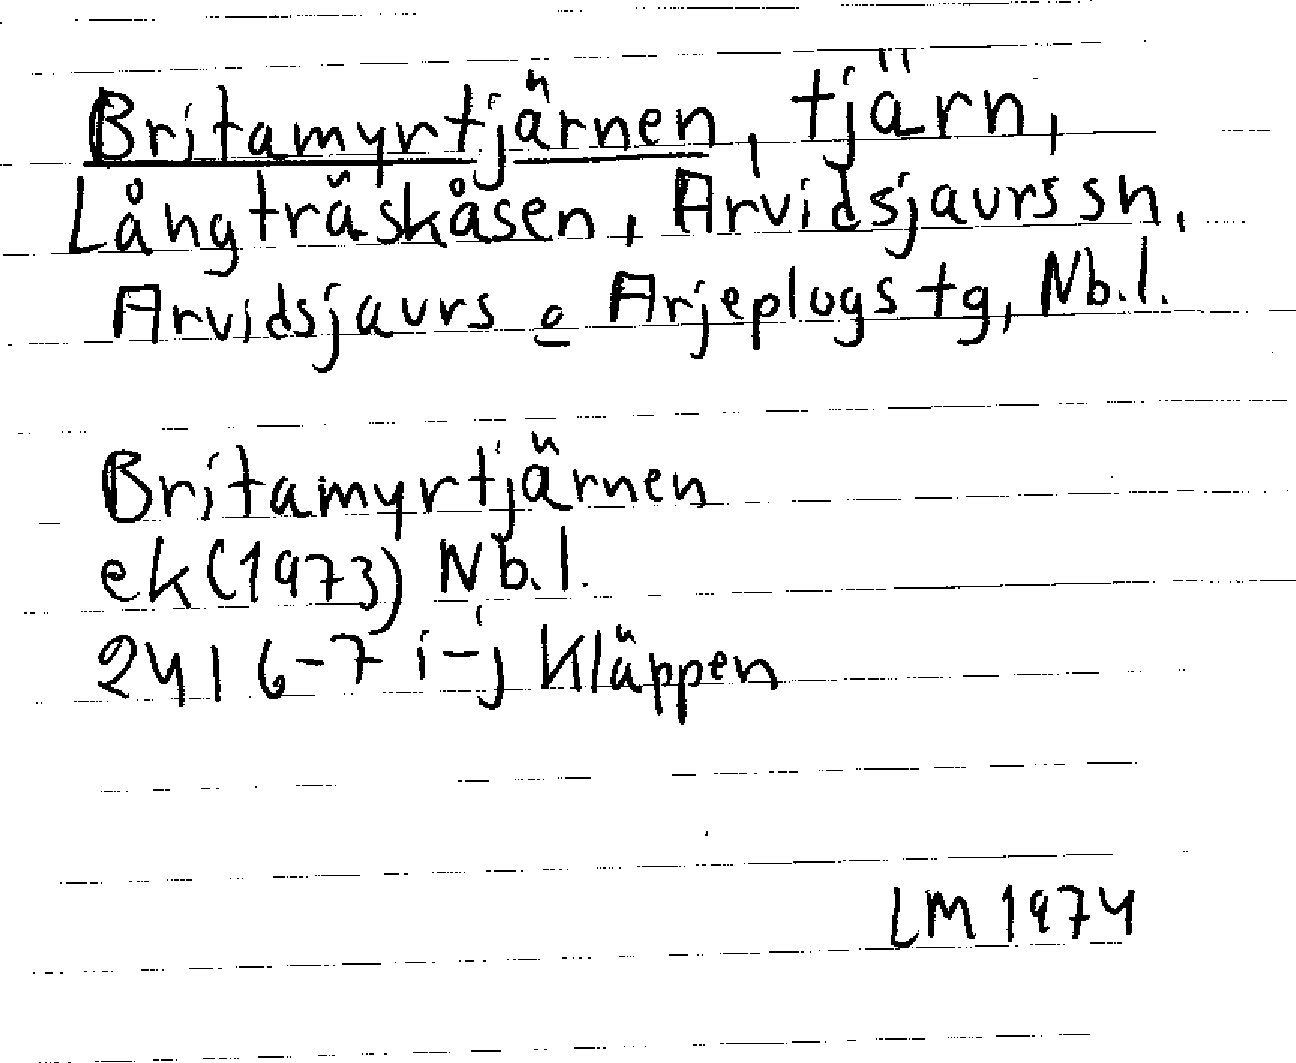 Britamyrtjärnen, tjärn,
Långträskåsen, Arvidsjaurs sn,
Arvidsjaurs o Arjeplogs tg, Nb.l.
Britamyrtjärnen
ek (1973) Nb.l.
24I 6-7 i-j Kläppen
LM 1974